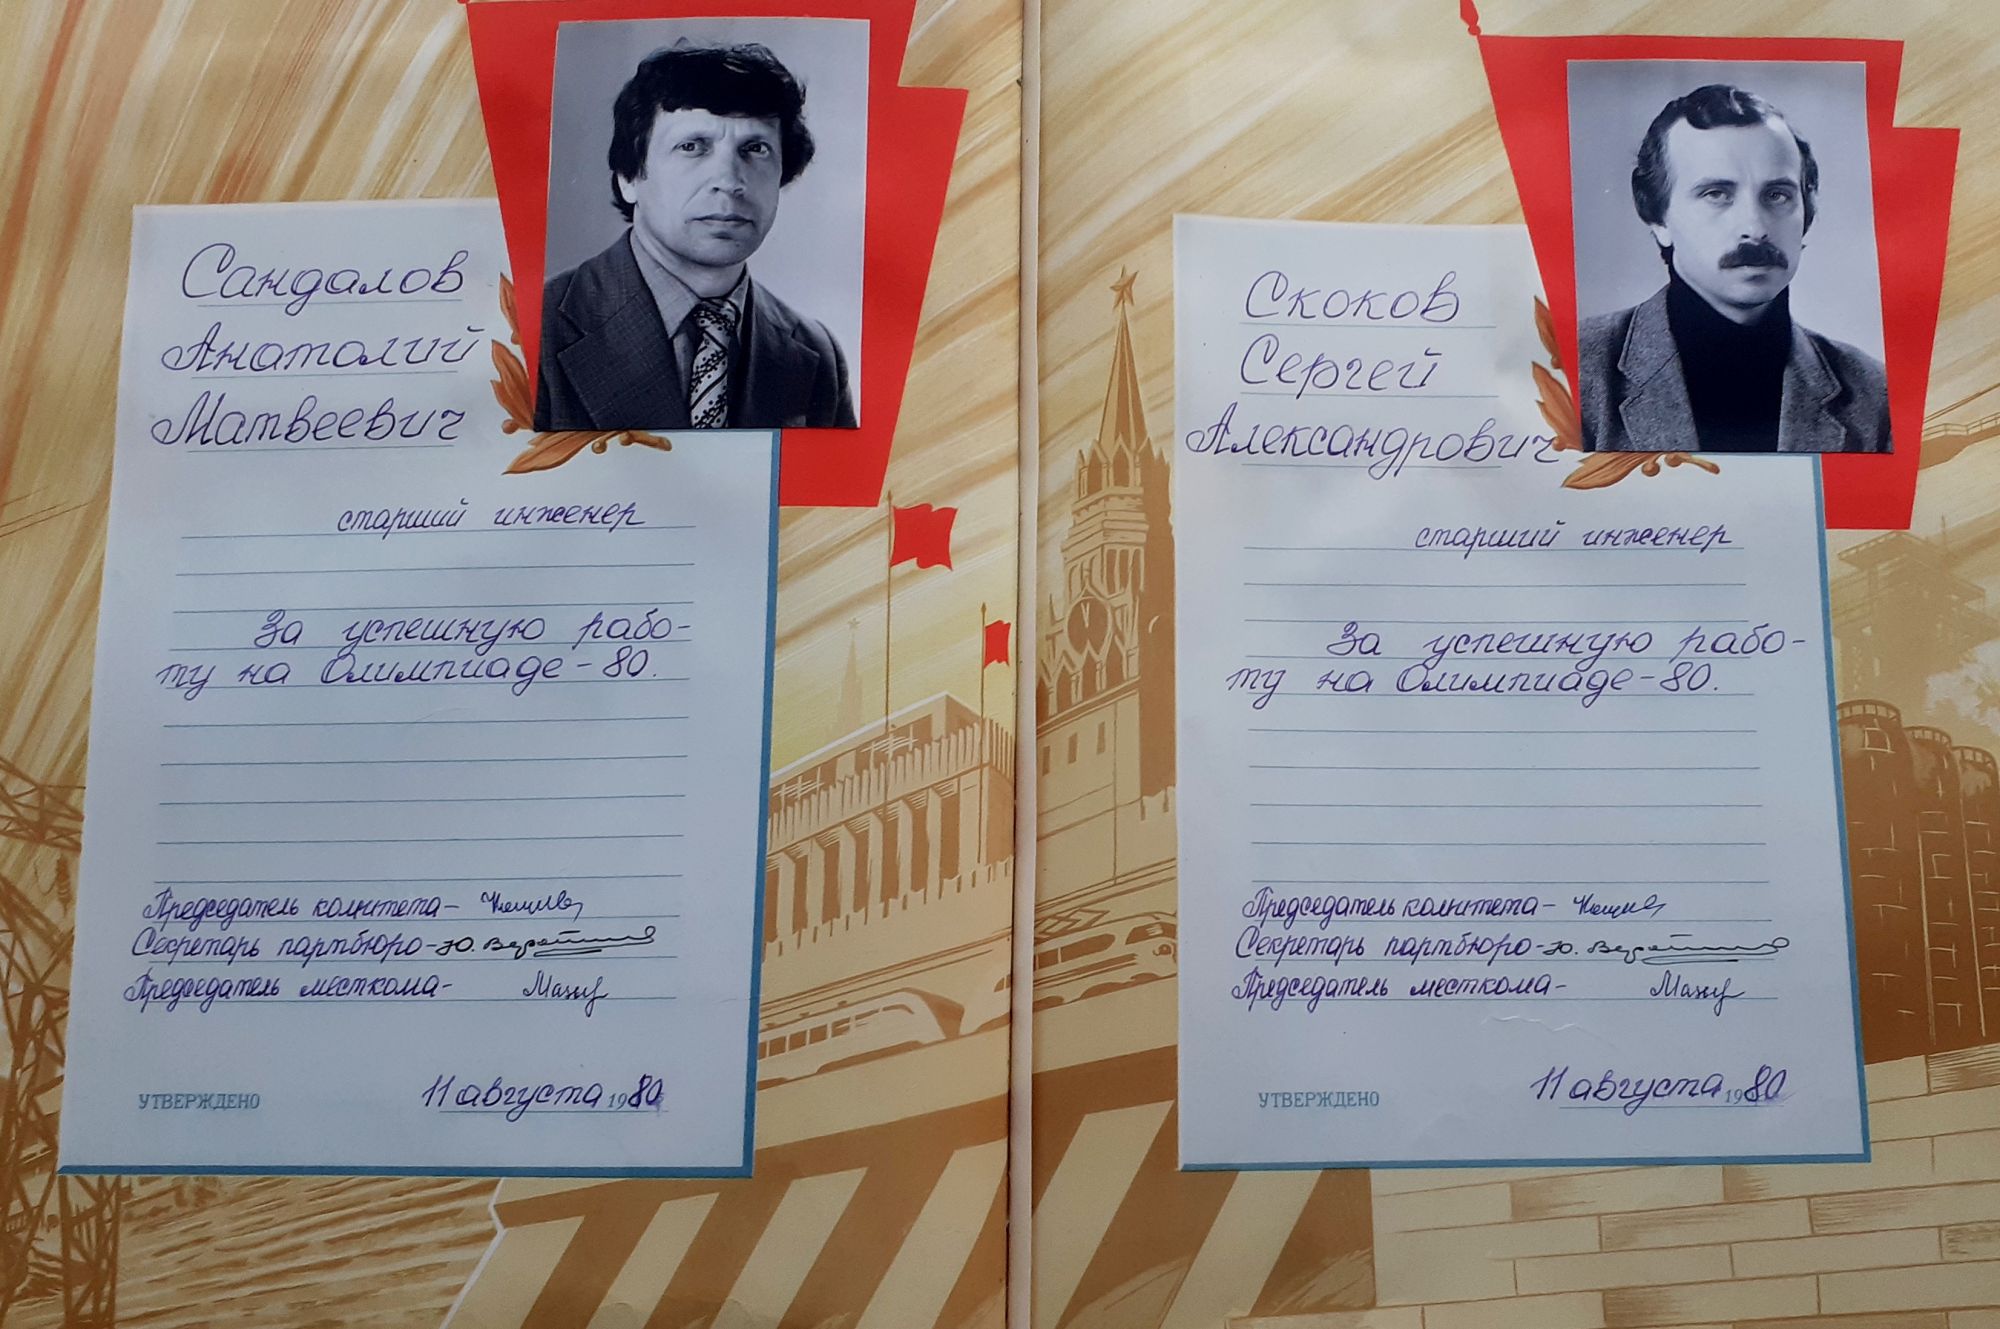 Сандалов
Анатолий
Матвеевич
старший инженер
За успешную рабо-
ту на Олимпиаде-80.
Председатель комитета-
Секретарь партбюро-Ю.
Председатель месткома-
УТВЕРЖДЕНО
11 августа 1980
Скоков
Сергей
Александрович
старший инженер
За успешную рабо-
ту на Олимпиаде-80.
Председатель комитета-
Секретарь партбюро-Ю.
Председатель месткома-
УТВЕРЖДЕНО
11 августа 1980